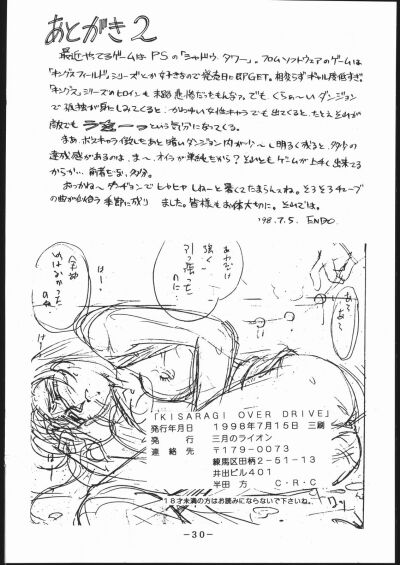 あとがき2
最近やってるゲームは PSの「シャドウ タワー」。フロムソフトウェアのゲームは
「キングスフィールド」シリーズとか好きなので発売日に即GET。相変らずギャル度低すぎ。
「キングス」シリーズのヒロインも末路悲惨だったもんなァ。でもくらぁ〜いダンジョン
で孤独が身にしみてくると、かわいい女性キャラでも出てくると、たとえそいつが
敵でも という気分になってくる。
まぁ、ボスキャラ倒したあと暗いダンジョン内が少〜し明るく残ると、多少の
達成感があるのは、ま〜、オイラが単純だから?それともゲームが上手く出来てる
からか… 前者だな、多分。
おっかね〜ダンジョンでヒャヒャしねーと暑くてたまらんスね。そろそろチューブ
の曲が似合う季節に成りました。皆様もお体大切に。そんでは。
'98.7.5. ENDO
あれだけ
強く
引っ張った
のに
「KISARAGI OVER DRIVE」
発行年月日 1998年7月15日 三刷
発行 三月のライオン
連絡先 〒179-0073
練馬区田柄2-51-13
井出ビル401
半田 方 C・R・C
18才未満の方はお読みにならないで下さいね。
-30-